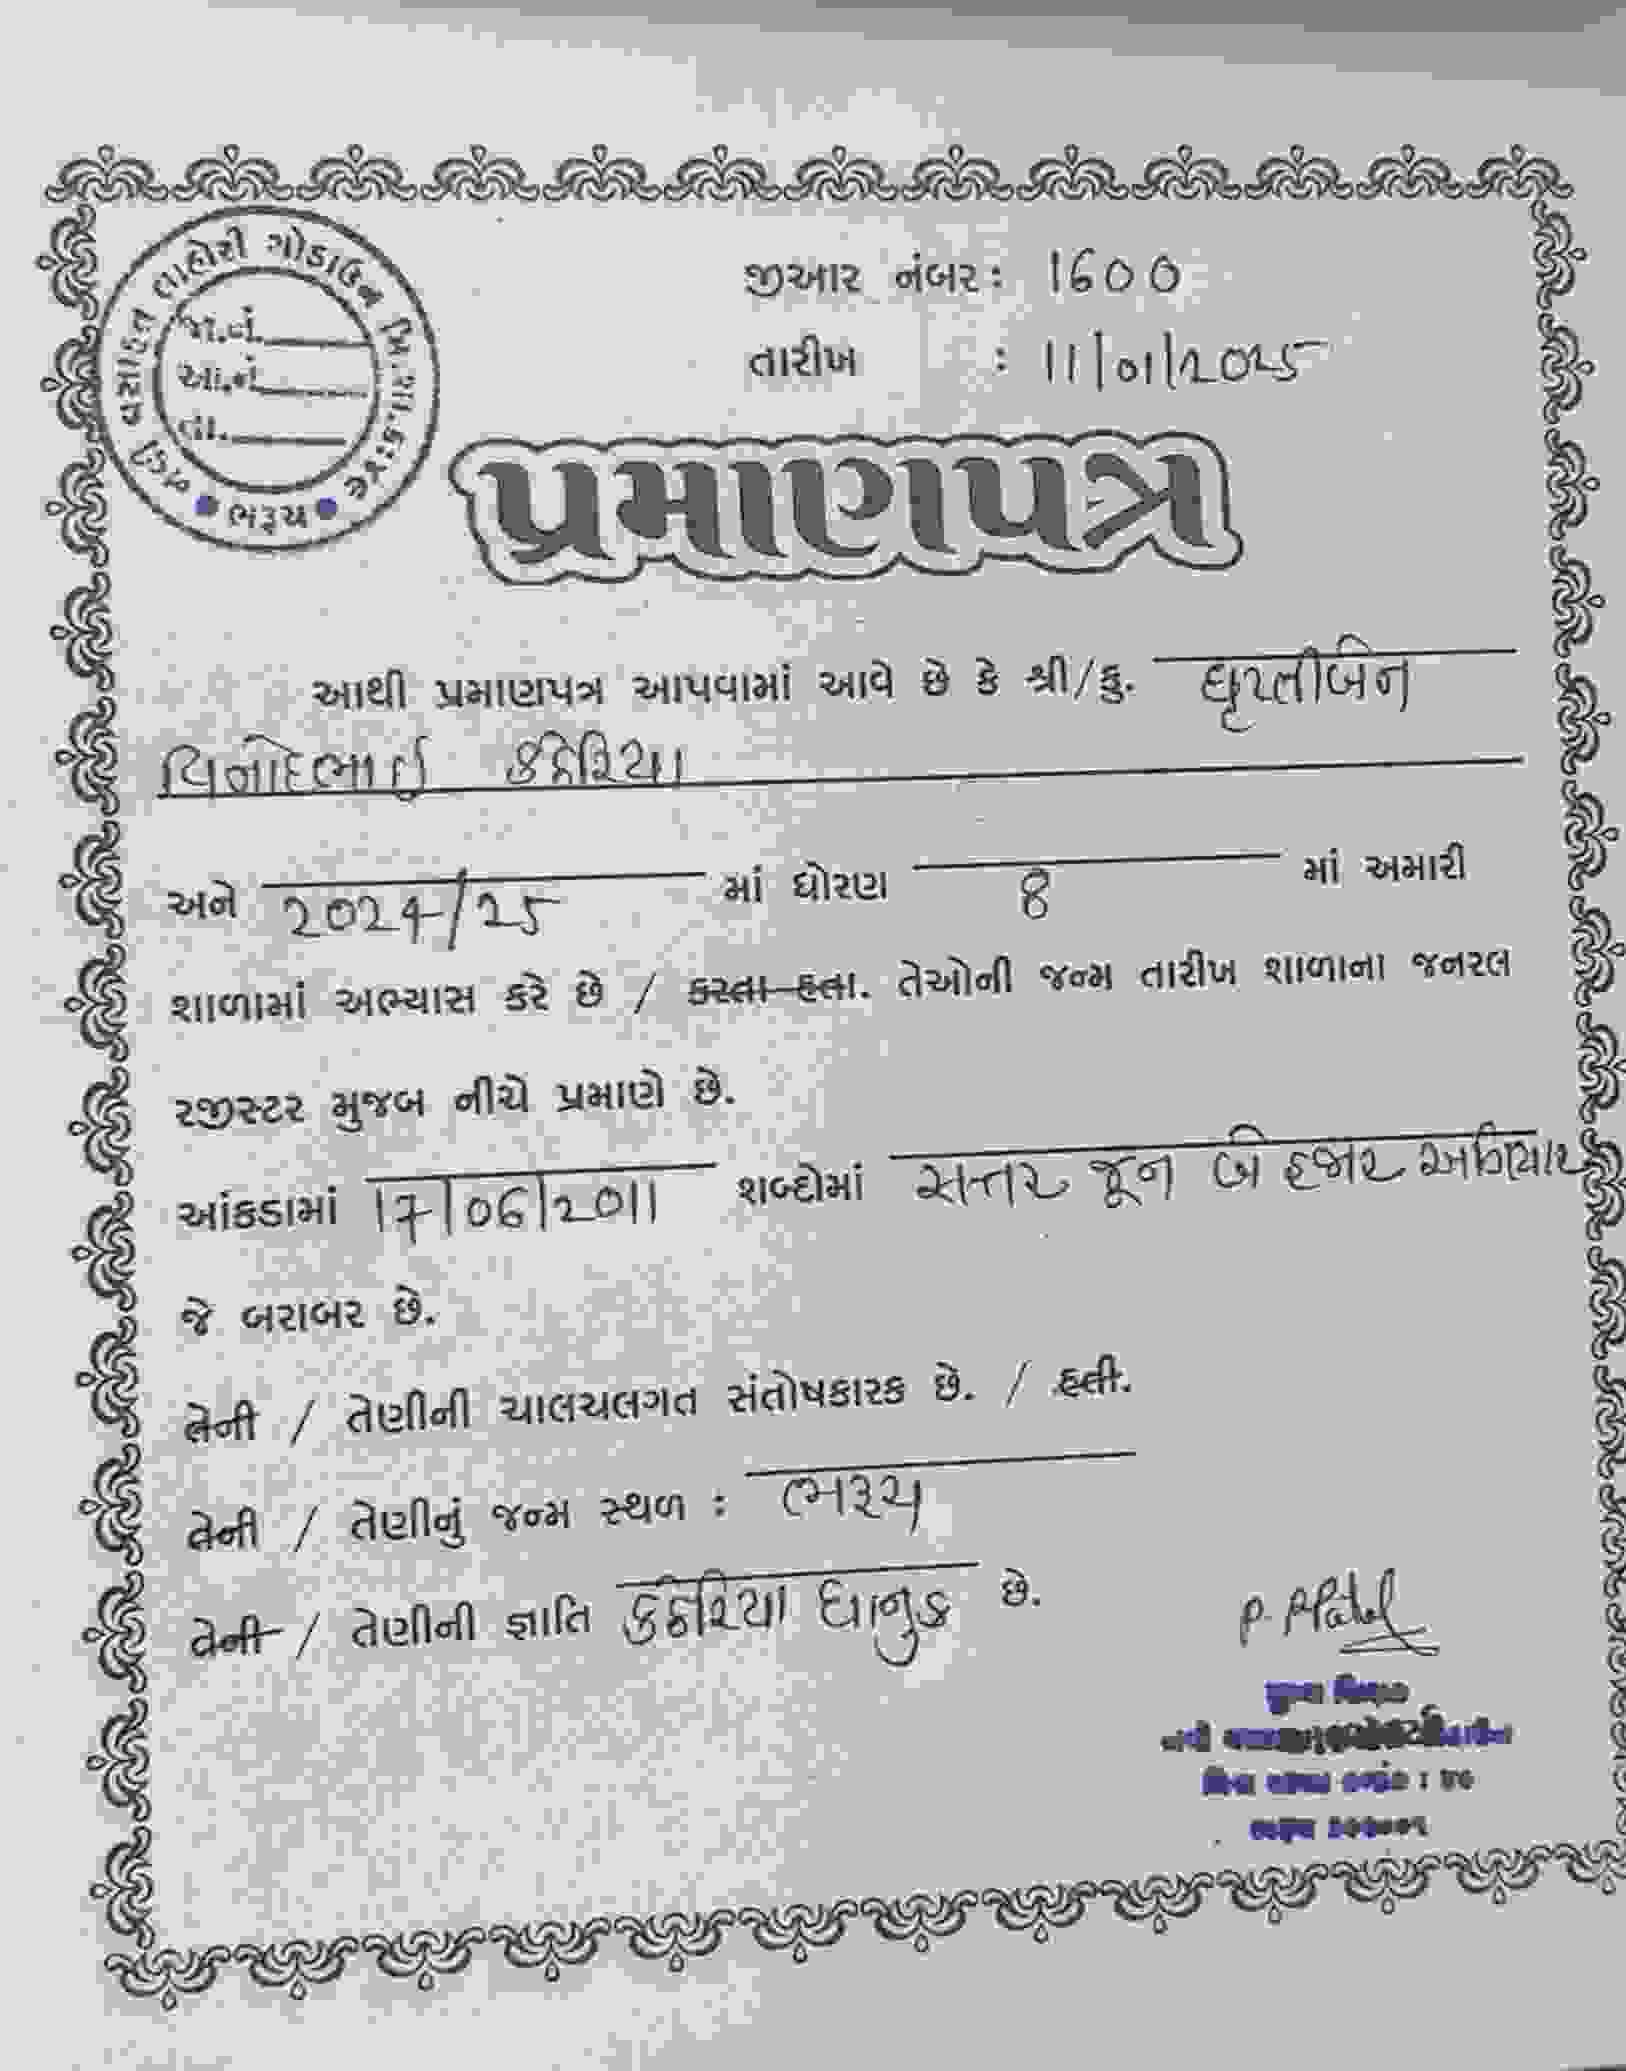 નવી વસાહત લાહોરી ગોડાઉન મિ.શા.ક્રઃ૪૯
જા.નં.
આ.નં.
તા.
ભરૂચ
જીઆર નંબર : 1600
તારીખ : 11/01/2025
પ્રમાણપત્ર
આથી પ્રમાણપત્ર આપવામાં આવે છે કે શ્રી/કુ. ધૃરતીબેન
વિનોદભાઈ કઠેરિયા
અને 2024/25 માં ધોરણ 8 માં અમારી
શાળામાં અભ્યાસ કરે છે / કરતા હતા. તેઓની જન્મ તારીખ શાળાના જનરલ
રજીસ્ટર મુજબ નીચે પ્રમાણે છે.
આંકડામાં 17/06/2011 શબ્દોમાં સત્તર જૂન બે હજાર અગિયાર
જે બરાબર છે.
તેની / તેણીની ચાલચલગત સંતોષકારક છે. / હતી.
તેની / તેણીનું જન્મ સ્થળ : ભરૂચ
તેની / તેણીની જ્ઞાતિ કઠેરિયા ધાનુક છે.
P. P. Patel
મુખ્ય શિક્ષક
ભરૂચ